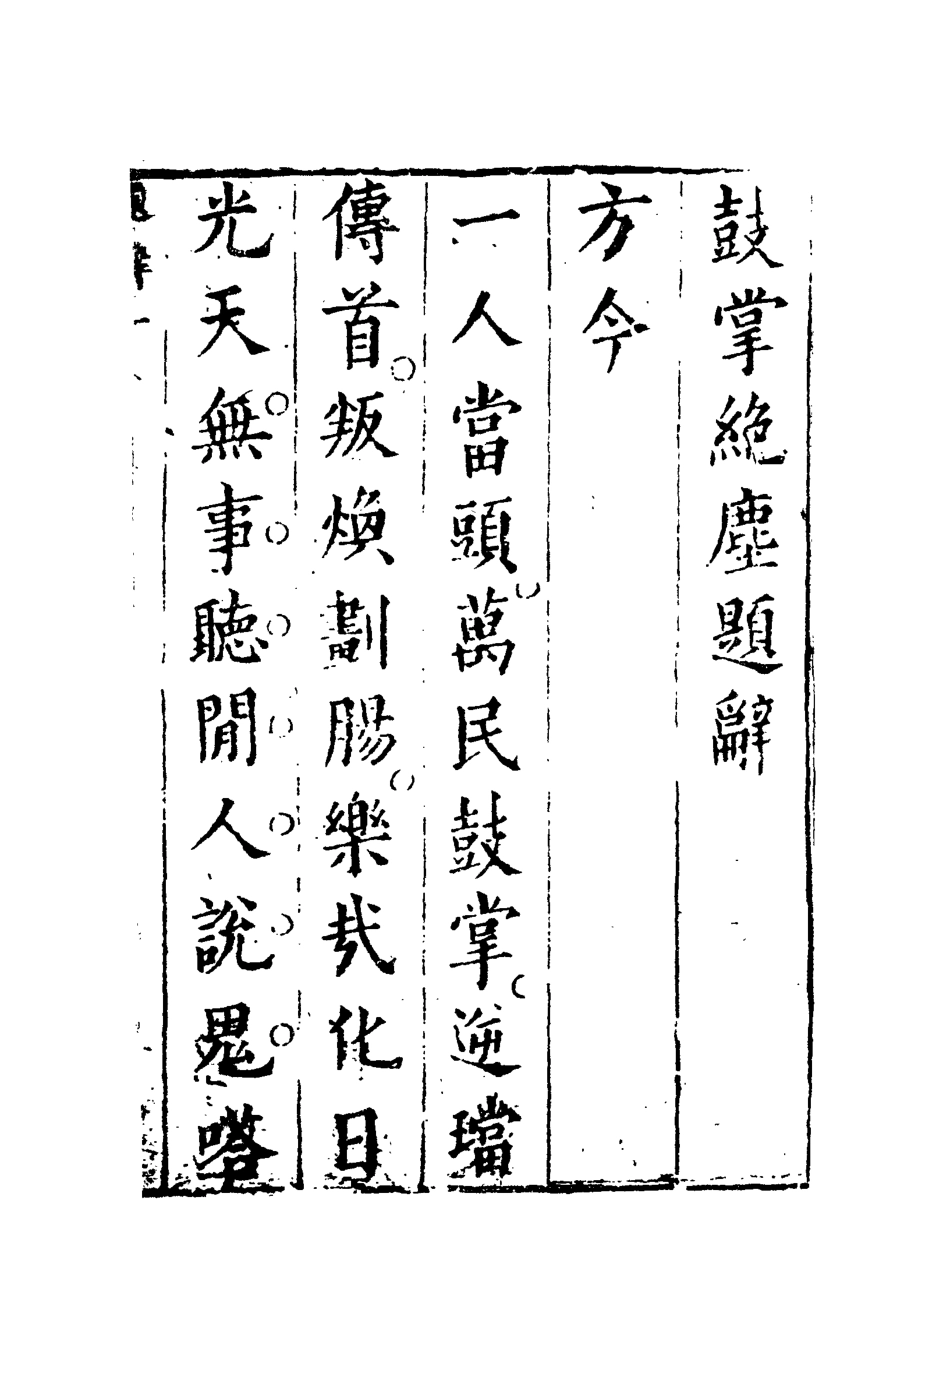 鼓掌絶塵題辭
方今
一人當頭萬民鼓掌逆璫
傳首叛煥劏腸樂哉化日
光天無事聽閒人說鬼嗒